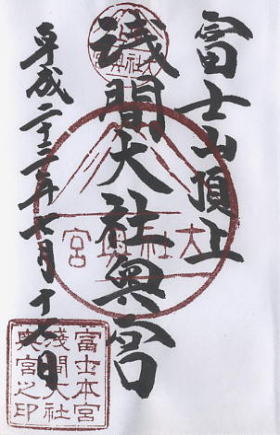 富士山頂上
浅間大社奥宮
平成二十二年七月十七日
大社奥宮
富士山本宮
浅間大社
奥宮之印